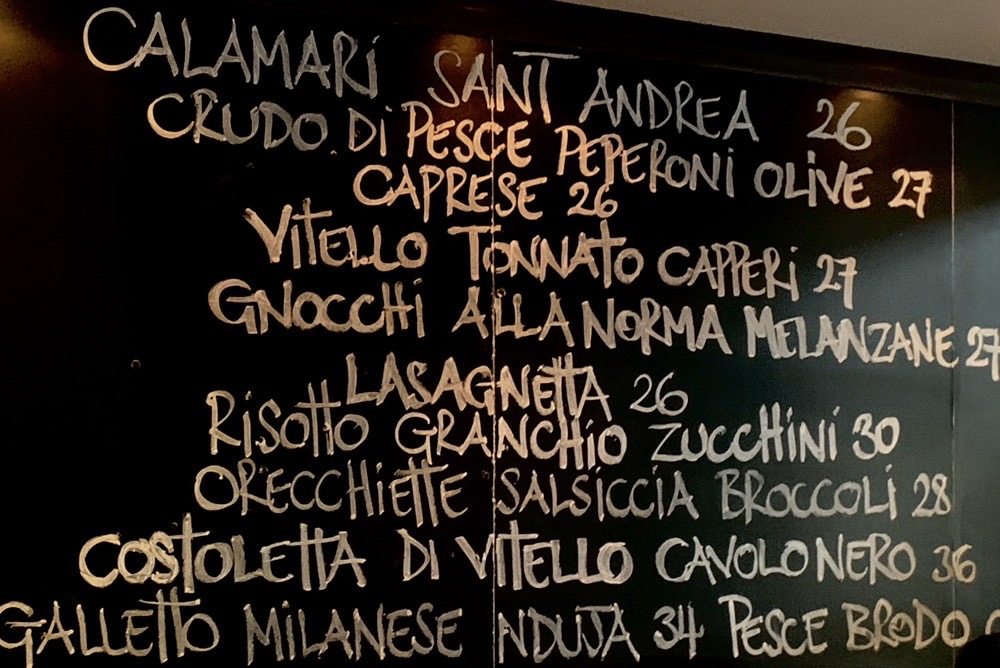 CALAMARI SANT ANDREA 26
CRUDO DI PESCE PEPERONI OLIVE 27
CAPRESE 26
VITELLO TONNATO CAPPERI 27
GNOCCHI ALLA NORMA MELANZANE 27
LASAGNETTA 26
RISOTTO GRANCHIO ZUCCHINI 30
ORECCHIETTE SALSICCIA BROCCOLI 28
COSTOLETTA DI VITELLO CAVOLO NERO 36
GALLETTO MILANESE NDUJA 34 PESCE BRODO